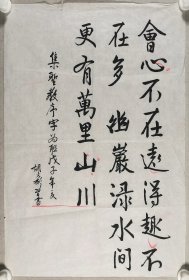 會心不在遠得趣不
在多幽巖渌水間
更有萬里山川
集聖教序字為聯戊子年夏